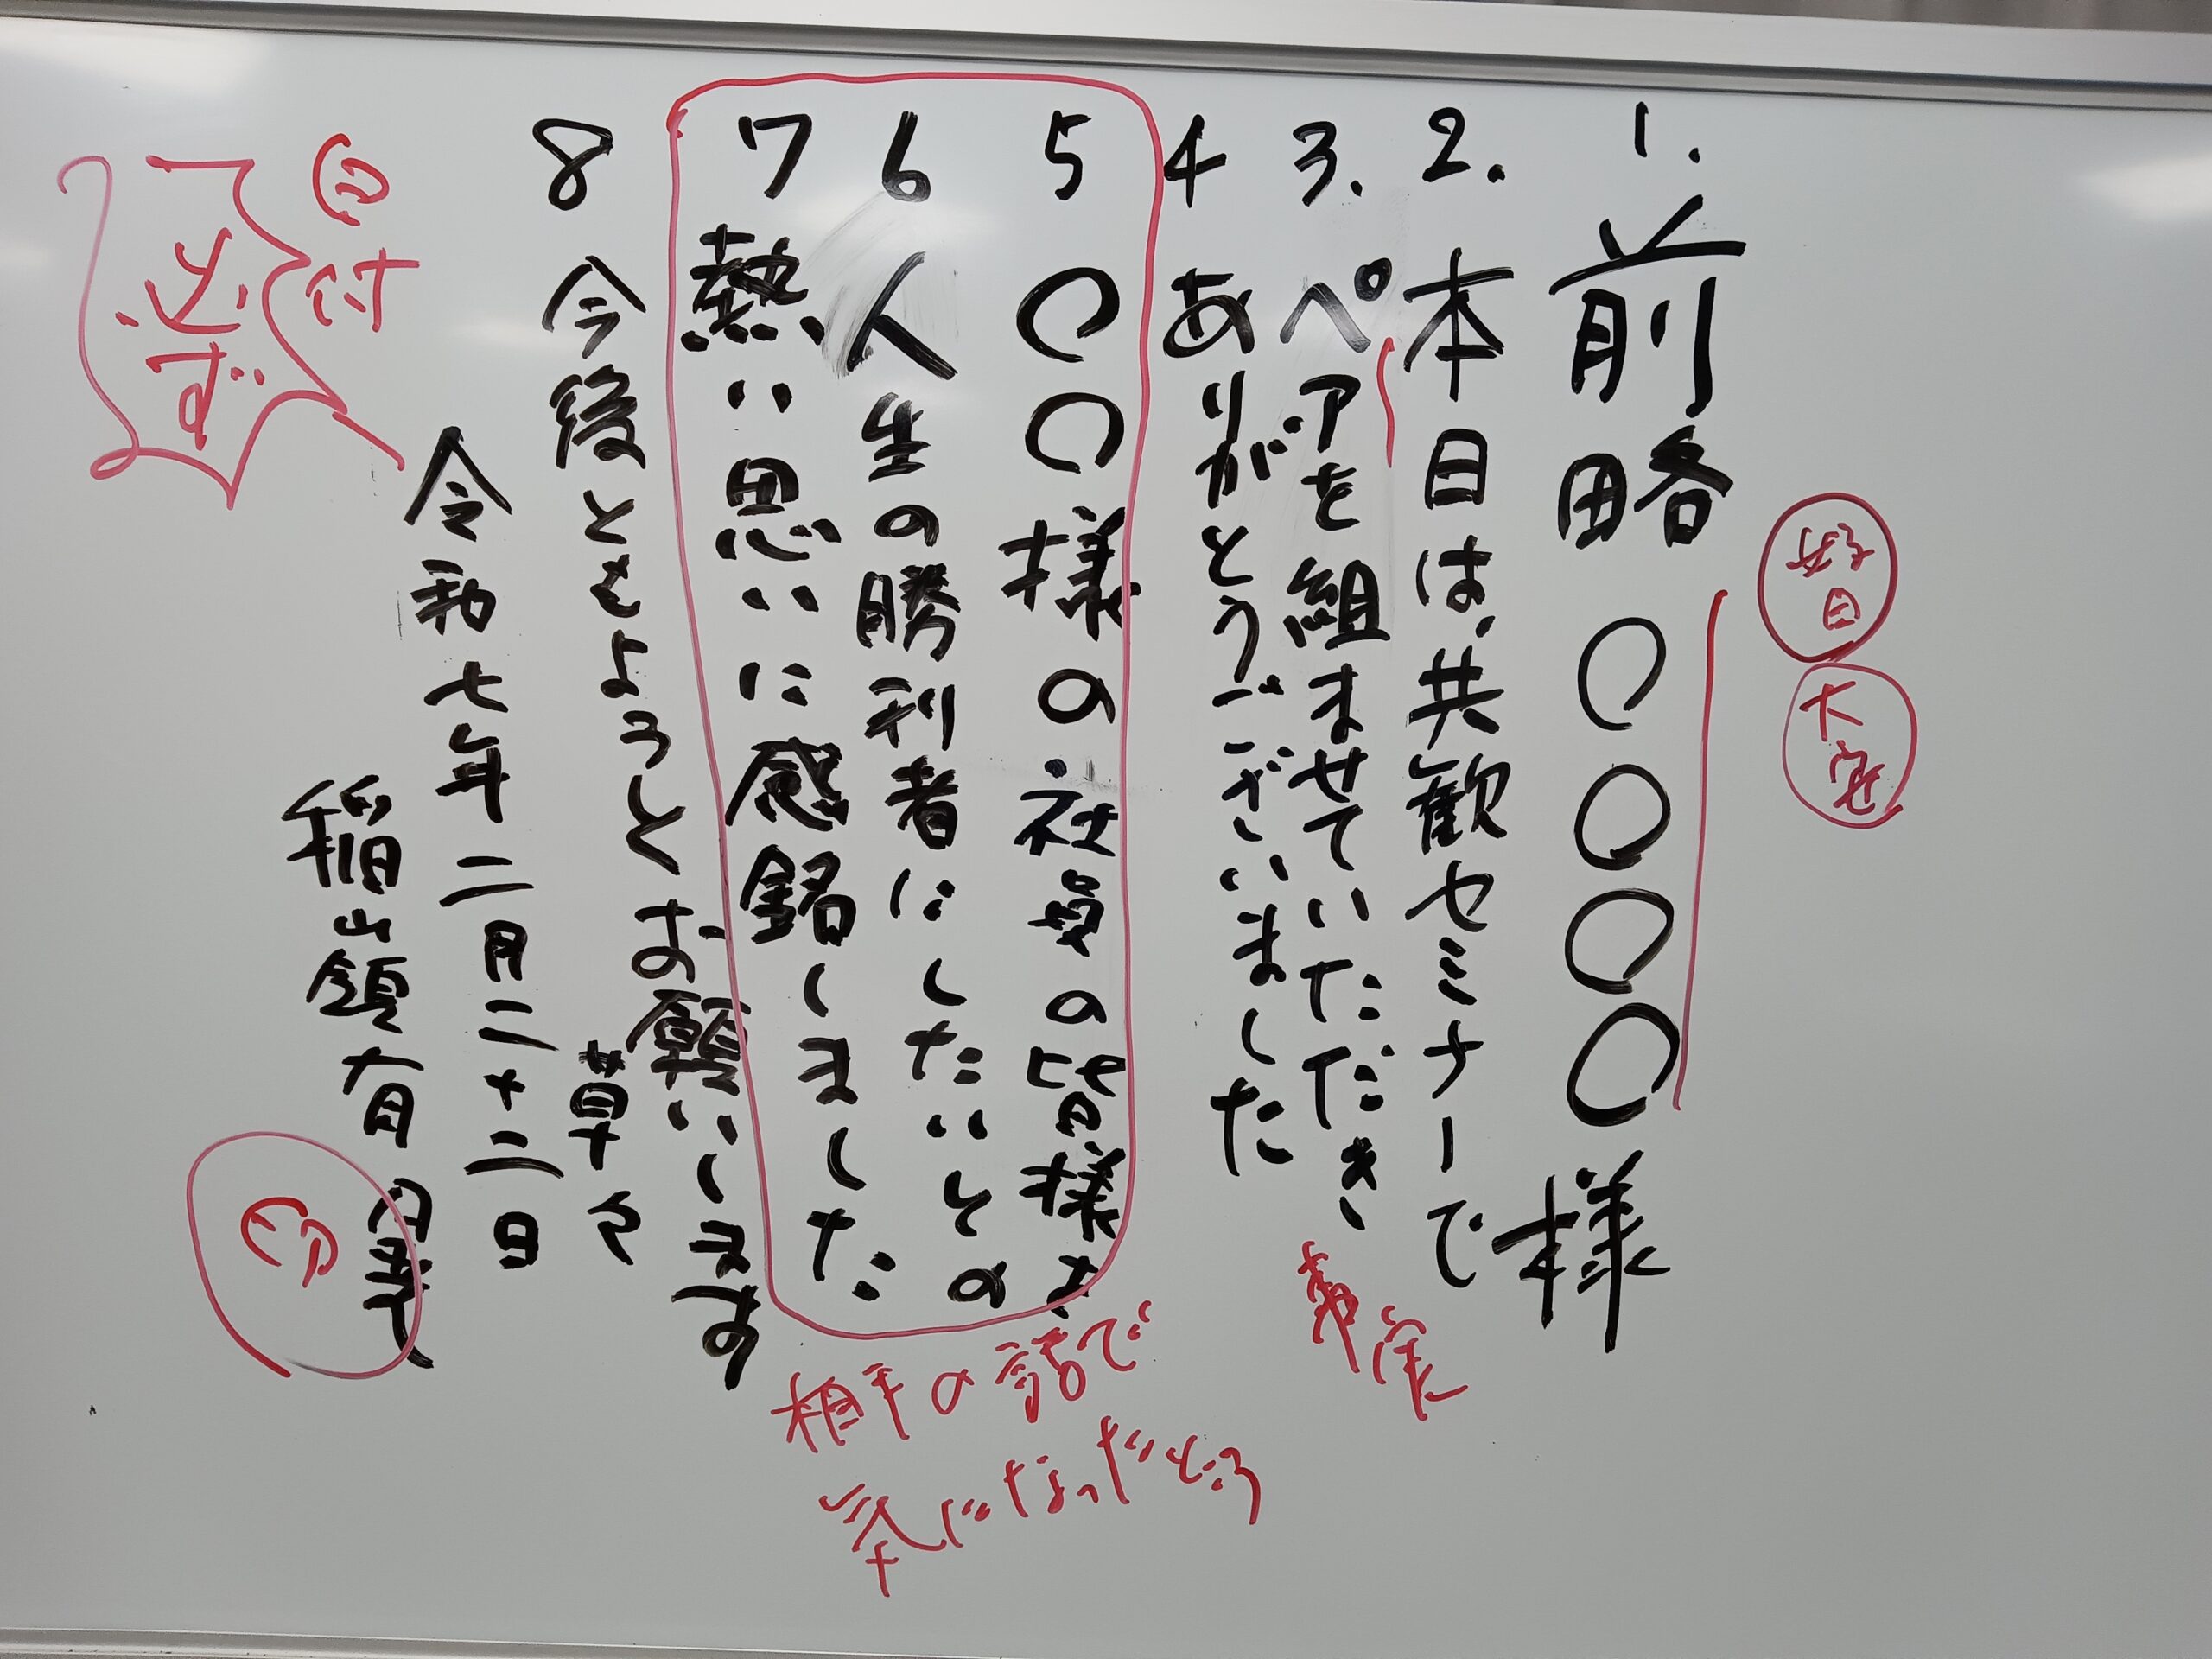 1. 前略 〇〇〇〇様
2. 本日は、共歓セミナーで
3. ペアを組ませていただき
4 ありがとうございました
5 〇〇様の社員の皆様を
6 人生の勝利者にしたいとの
7 熱い思いに感銘しました
8 今後ともよろしくお願いします
草々
令和七年二月二十二日
稲山領有
印
日付
必ず
相手の話で